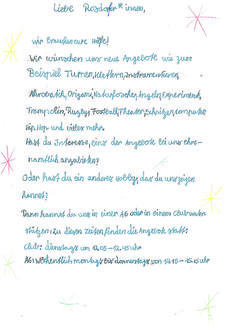 Liebe Rosdorfer*innen,
wir brauchen eure Hilfe!
Wir wünschen uns neue Angebote wie zum
Beispiel Turnen, Klettern, Instrumentieren,
Akrobatik, Origami, Naturforscher, Angeln, Experiment,
Trampolin, Rugby, Football, Theater, Schnitzen, computer
Hip Hop und vieles mehr.
Hast du Interesse, eins der Angebote bei uns ehre-
namtlich anzubieten?
Oder hast du ein anderes Hobby, das du uns zeigen
kannst?
Dann kannst du uns in einer AG oder in einem Club unter
stützen: zu diesen Zeiten finden die Angebote statt:
Club: Dienstags von
AG: Wöchentlich montags bis donnerstags von